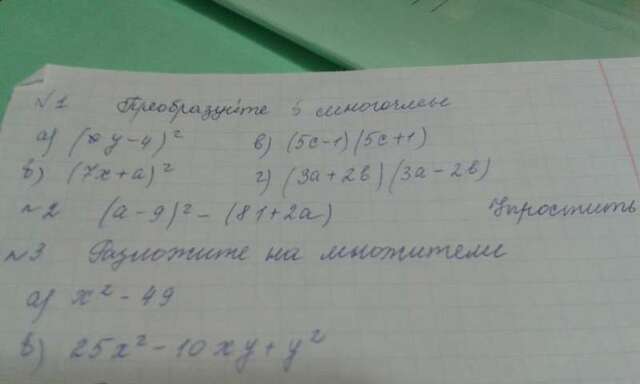 №1 Преобразуйте в многочлены
а) (y-4)² в) (5c-1)(5c+1)
б) (7x+a)² г) (3a+2b)(3a-2b)
№2 (a-9)²-(81+2a) Упростить
№3 Разложите на множители
а) x²-49
б) 25x²-10xy+y²